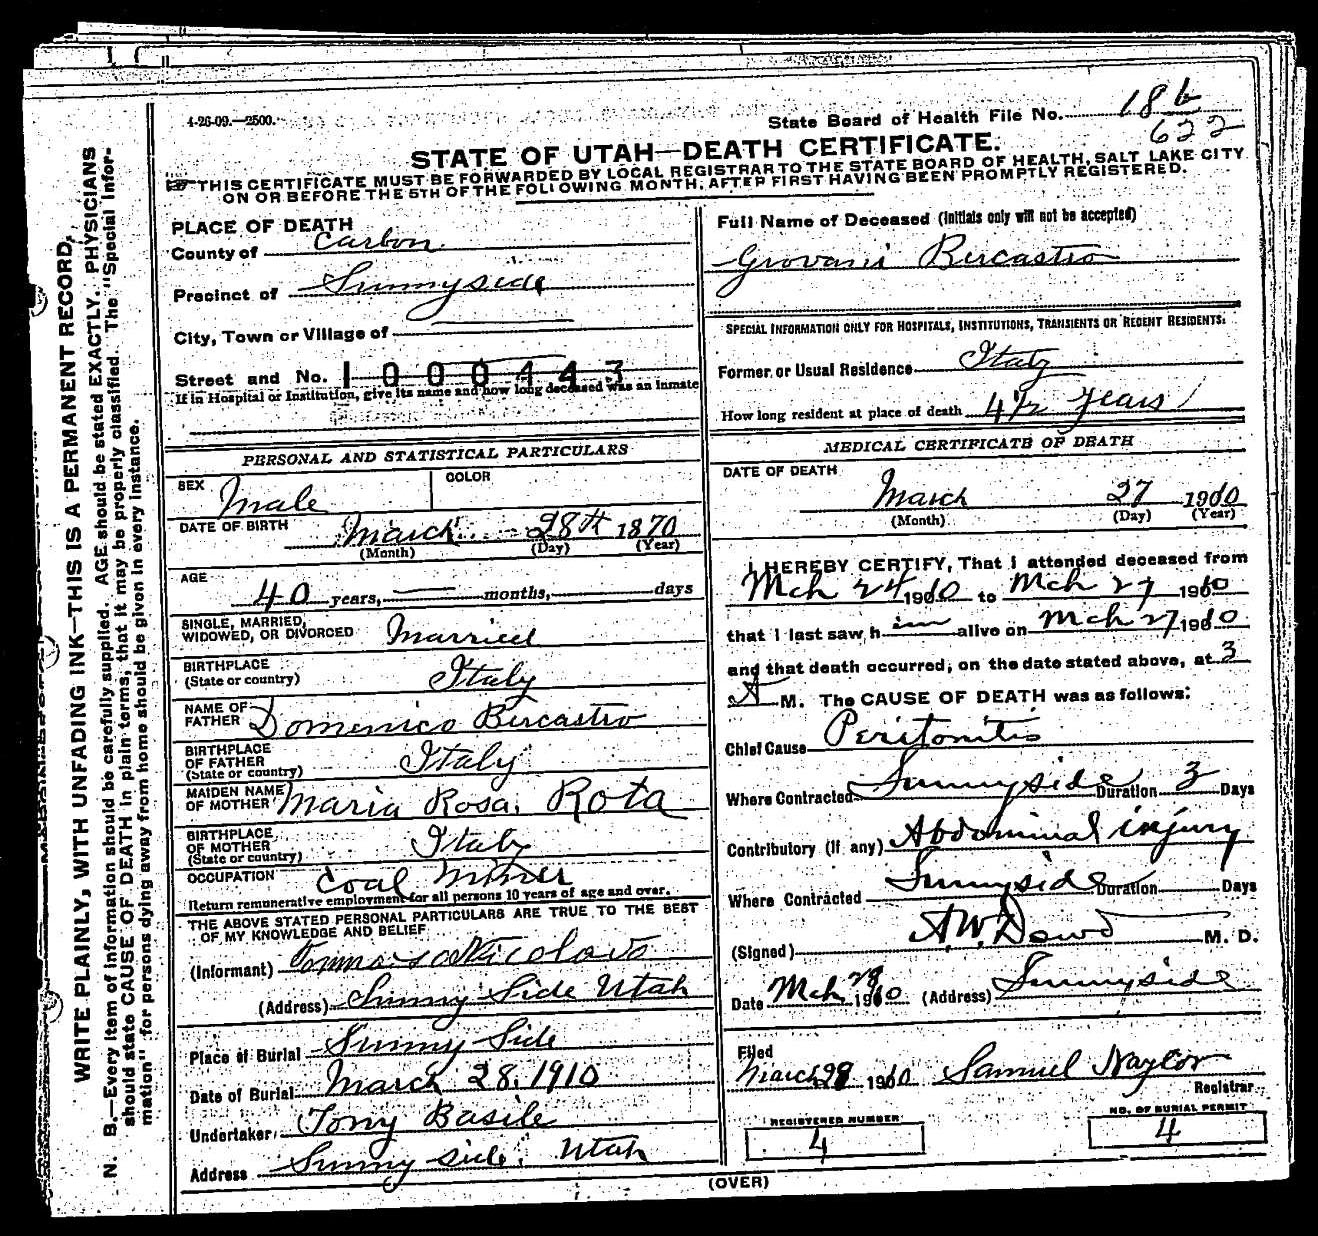 WRITE PLAINLY, WITH UNFADING INK—THIS IS A PERMANENT RECORD.
N. B.—Every item of information should be carefully supplied. AGE should be stated EXACTLY. PHYSICIANS
should state CAUSE OF DEATH in plain terms, that it may be properly classified. The "Special Infor-
mation" for persons dying away from home should be given in every instance.
4-26-09.—2500.
State Board of Health File No. 18 b
622
STATE OF UTAH—DEATH CERTIFICATE.
THIS CERTIFICATE MUST BE FORWARDED BY LOCAL REGISTRAR TO THE STATE BOARD OF HEALTH, SALT LAKE CITY
ON OR BEFORE THE 5TH OF THE FOLLOWING MONTH, AFTER FIRST HAVING BEEN PROMPTLY REGISTERED.
PLACE OF DEATH
County of Carbon
Precinct of Sunnyside
City, Town or Village of
Street and No. 1000443
If in Hospital or Institution, give its name and how long deceased was an inmate
PERSONAL AND STATISTICAL PARTICULARS
SEX Male
COLOR
DATE OF BIRTH March 28th 1870
(Month) (Day) (Year)
AGE
40 years, — months, days
SINGLE, MARRIED,
WIDOWED, OR DIVORCED Married
BIRTHPLACE
(State or country) Italy
NAME OF
FATHER Domenico Bercastro
BIRTHPLACE
OF FATHER
(State or country) Italy
MAIDEN NAME
OF MOTHER Maria Rosa Rota
BIRTHPLACE
OF MOTHER
(State or country) Italy
OCCUPATION Coal Miner
Return remunerative employment for all persons 10 years of age and over.
THE ABOVE STATED PERSONAL PARTICULARS ARE TRUE TO THE BEST
OF MY KNOWLEDGE AND BELIEF
(Informant)
(Address) Sunny Side Utah
Place of Burial Sunny Side
Date of Burial March 28, 1910
Undertaker Tony Basile
Address Sunny side, Utah
Full Name of Deceased (Initials only will not be accepted)
Giovani Bercastro
SPECIAL INFORMATION ONLY FOR HOSPITALS, INSTITUTIONS, TRANSIENTS OR RECENT RESIDENTS.
Former or Usual Residence Italy
How long resident at place of death 4 1/2 years
MEDICAL CERTIFICATE OF DEATH
DATE OF DEATH
March 27 1910
(Month) (Day) (Year)
I HEREBY CERTIFY, That I attended deceased from
Mch 24 1910 to Mch 27 1910
that I last saw him alive on Mch 27 1910
and that death occurred, on the date stated above, at 3
A M. The CAUSE OF DEATH was as follows:
Chief Cause Peritonitis
Where Contracted Sunnyside Duration 3 Days
Contributory (If any) Abdominal injury
Where Contracted Sunnyside Duration Days
(Signed) A.W. Dowd M. D.
Date Mch 28 1910 (Address) Sunnyside
Filed
March 28 1910 Samuel Naylor
Registrar
REGISTERED NUMBER
4
NO. OF BURIAL PERMIT
4
(OVER)